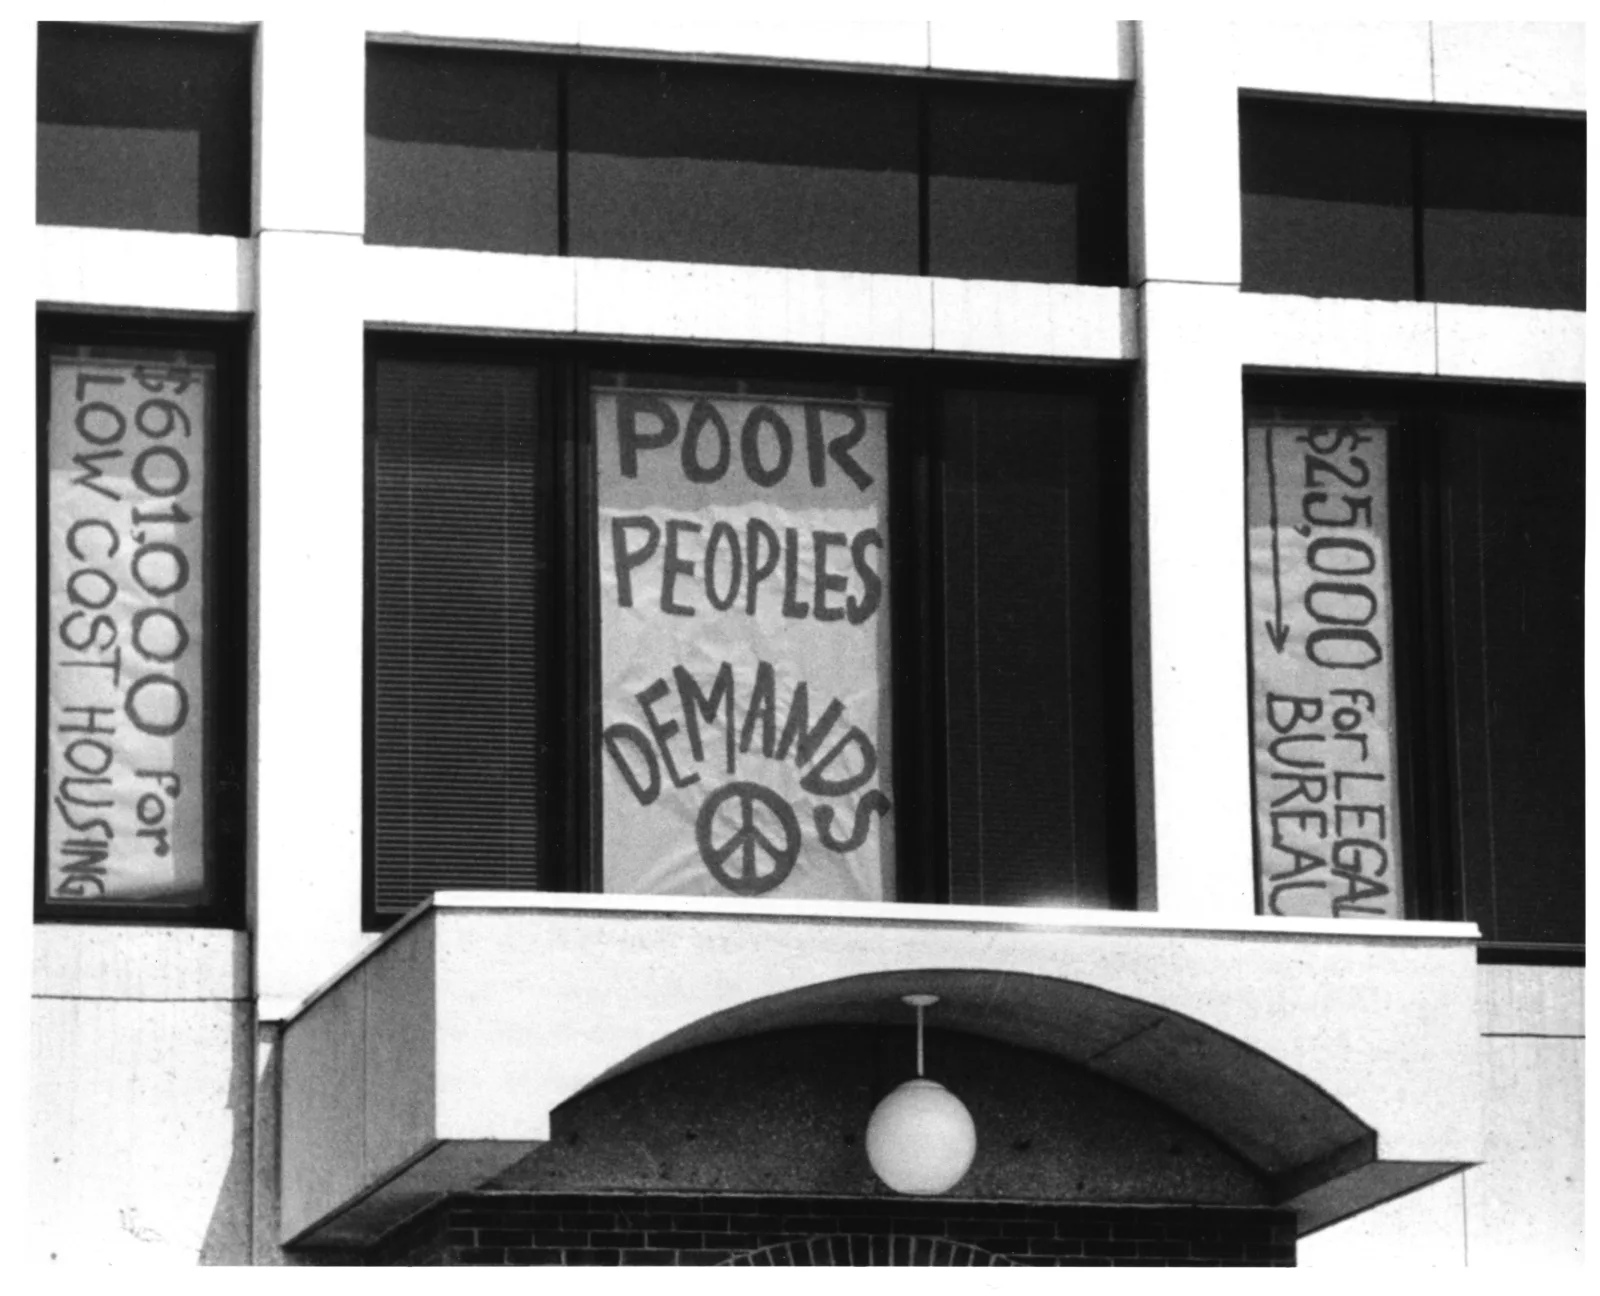 $601,000 for
LOW COST HOUSING
POOR
PEOPLES
DEMANDS
$25,000 for LEGAL
BUREAU